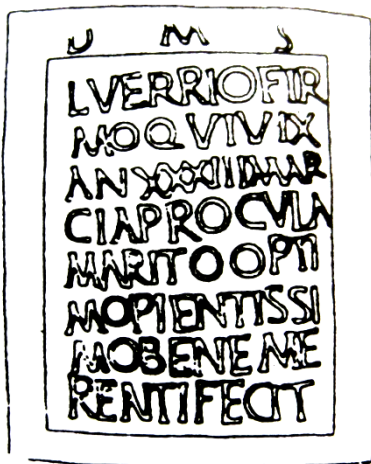 D M S
L VERRIO FIR
MO QVI VIX
AN MAR
CIA PROCVLA
MARITO OPTI
MO PIENTISSI
MO BENE ME
RENTI FECIT